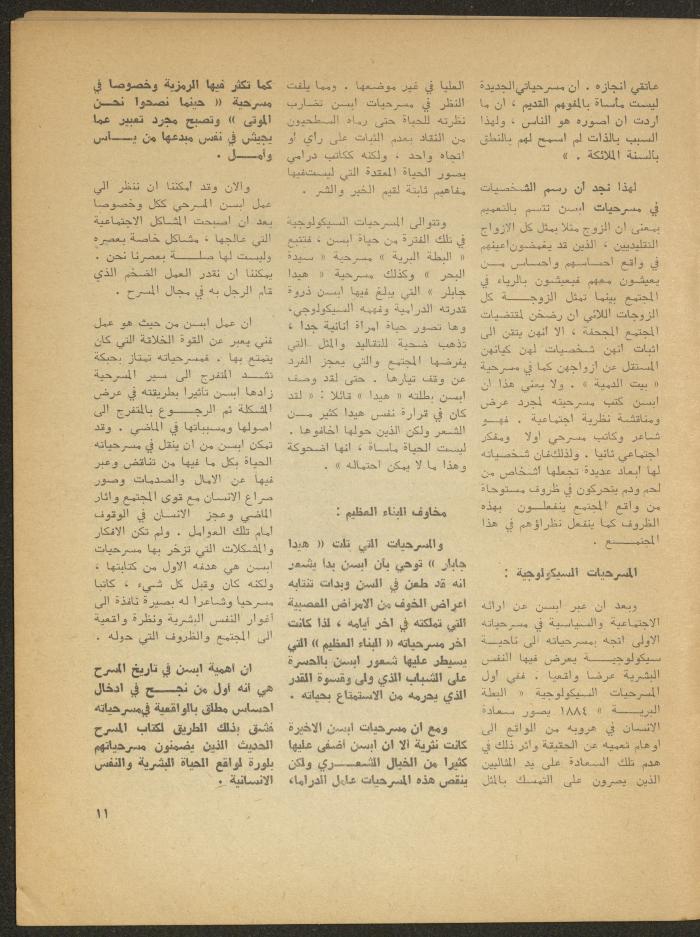 عاتقي انجازه . ان مسرحياتي الجديدة
ليست مأساة بالمفهوم القديم ، ان ما
اردت ان اصوره هو الناس ، ولهذا
السبب بالذات لم اسمح لهم بالنطق
بألسنة الملائكة . »
لهذا نجد ان رسم الشخصيات
في مسرحيات ابسن تتسم بالتعميم
بمعنى ان الزوج مثلا يمثل كل الازواج
التقليديين ، الذين قد يغمضون اعينهم
في واقع احساسهم واحساس مــن
يعيشون معهم فيعيشون بالرياء في
المجتمع بينما تمثل الزوجــة كل
الزوجات اللائي ان رضخن لمقتضيات
المجتمع المجحفة ، الا انهن يتقن الى
اثبات انهن شخصيات لهن كيانهن
المستقل عن ازواجهن كما في مسرحية
« بيت الدمية » . ولا يعني هذا ان
ابسن كتب مسرحيته لمجرد عرض
ومناقشة نظرية اجتماعية . فهــو
شاعر وكاتب مسرحي اولا ومفكر
اجتماعي ثانيا . ولذلك فان شخصياته
لها ابعاد عديدة تجعلها اشخاص من
لحم ودم يتحركون في ظروف مستوحاة
من واقع المجتمع ينفعلــون بهذه
الظروف كما ينفعل نظراؤهم في هذا
المجتمــــع .
المسرحيات السيكولوجية :
وبعد ان عبر ابسن عن ارائه
الاجتماعية والسياسية في مسرحياته
الاولى اتجه بمسرحياته الى ناحيــة
سيكولوجيــــة يعرض فيها النفس
البشرية عرضا واقعيا . ففي اول
المسرحيات السيكولوجية « البطة
البريــــة » ١٨٨٤ يصور سعادة
الانسان في هروبه من الواقع الى
اوهام تعميه عن الحقيقة واثر ذلك في
هدم تلك السعادة على يد المثاليين
الذين يصرون على التمسك بالمثل
العليا في غير موضعها . ومما يلفت
النظر في مسرحيات ابسن تضارب
نظرته للحياة حتى رماه السطحيون
من النقاد بعدم الثبات على راي او
اتجاه واحد ، ولكنه ككاتب درامي
يصور الحياة المعقدة التي ليست فيها
مفاهيم ثابتة لقيم الخير والشر .
وتتوالى المسرحيات السيكولوجية
في تلك الفترة من حياة ابسن ، فتتبع
« البطة البرية » مسرحية « سيدة
البحر » وكذلك مسرحية « هيدا
جابلر » التي يبلغ فيها ابسن ذروة
قدرته الدرامية وفهمه السيكولوجي،
وها تصور حياة امرأة انانية جدا ،
تذهب ضحية للتقاليد والمثل التي
يفرضها المجتمع والتي يعجز الفرد
عن وقف تيارها . حتى لقد وصف
ابسن بطلته « هيدا » قائلا : « لقد
كان في قرارة نفس هيدا كثير مــن
الشعر ولكن الذين حولها اخافوها .
ليست الحياة مأساة ، انها اضحوكة
وهذا ما لا يمكن احتماله » .
مخاوف البناء العظيم :
والمسرحيات التي تلت « هيدا
جابلر » توحي بان ابسن بدا يشعر
انه قد طعن في السن وبدات تنتابه
اعراض الخوف من الامراض العصبية
التي تملكته في اخر أيامه ، لذا كانت
اخر مسرحياته « البناء العظيم » التي
يسيطر عليها شعور ابسن بالحسرة
على الشباب الذي ولى وقسوة القدر
الذي يحرمه من الاستمتاع بحياته .
ومع ان مسرحيات ابسن الاخيرة
كانت نثرية الا ان ابسن اضفى عليها
كثيرا من الخيال الشعــــري ولكن
ينقص هذه المسرحيات عامل الدراما،
كما تكثر فيها الرمزية وخصوصا في
مسرحية « حينما نصحوا نحــن
الموتى » وتصبح مجرد تعبير عما
يجيش في نفس مبدعها من يــــاس
وأمــــل .
والان وقد امكننا ان ننظر الي
عمل ابسن المسرحي ككل وخصوصا
بعد ان اصبحت المشاكل الاجتماعية
التي عالجها ، مشاكل خاصة بعصره
وليست لها صلــــة بعصرنا نحن .
يمكننا ان نقدر العمل الضخم الذي
قام الرجل به في مجال المسرح .
ان عمل ابسن من حيث هو عمل
فني يعبر عن القوة الخلاقة التي كان
يتمتع بها . فمسرحياته تمتاز بحبكة
تشــد المتفرج الى سير المسرحية
زادها ابسن تأثيرا بطريقته في عرض
المشكلة ثم الرجــــوع بالمتفرج الى
اصولها ومسبباتها في الماضي . وقد
تمكن ابسن من ان ينقل في مسرحياته
الحياة بكل ما فيها من تناقض وعبر
فيها عن الامال والصدمات وصور
صراع الانسان مع قوى المجتمع واثار
الماضي وعجز الانسان في الوقوف
امام تلك العوامل . ولم تكن الافكار
والمشكلات التي تزخر بها مسرحيات
ابسن هي هدفه الاول من كتابتها ،
ولكنه كان وقبل كل شيء ، كاتبا
مسرحيا وشاعرا له بصيرة نافذة الى
أغوار النفس البشرية ونظرة واقعية
الى المجتمع والظروف التي حوله .
ان اهمية ابسن في تاريخ المسرح
هي انه اول من نجــــح في ادخال
احساس مطلق بالواقعية في مسرحياته
فشق بذلك الطريق لكتاب المسرح
الحديث الذين يضمنون مسرحياتهم
بلورة لواقع الحياة البشرية والنفس
الانسانية .
١١